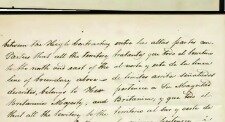 between the High Contracting
Parties that all the Territory
to the north and east of the
line of boundary above
described, belongs to Her
Britannic Majesty, and
that all the Territory to the
entre las altas partes con
tratantes que todo el territorio
al norte y este de la línea
de límites arriba
pertenece a Su Majestad
Británica, y que todo el
territorio al sur y oeste de